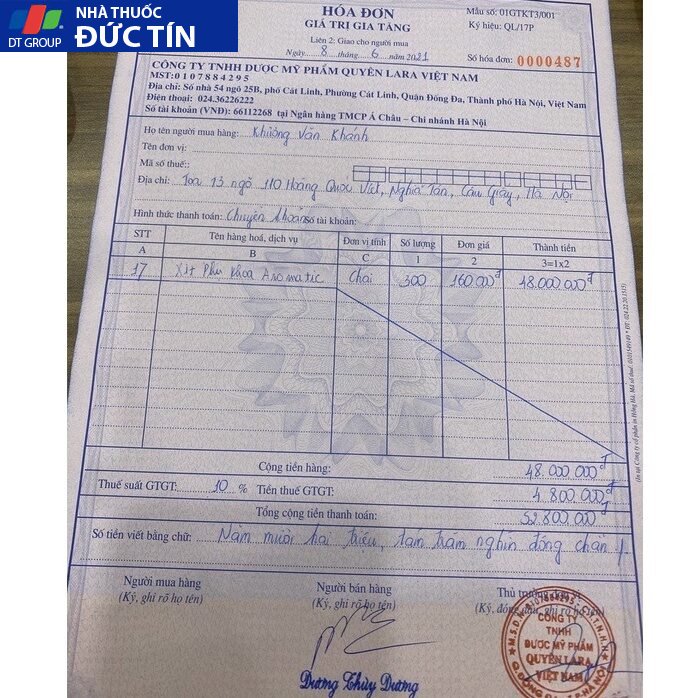 DT GROUP
NHÀ THUỐC
ĐỨC TÍN
HÓA ĐƠN
GIÁ TRỊ GIA TĂNG
Liên 2: Giao cho người mua
Ngày 8 tháng 6 năm 2021
Mẫu số: 01GTKT3/001
Ký hiệu: QL/17P
Số hóa đơn: 0000487
CÔNG TY TNHH DƯỢC MỸ PHẨM QUYÊN LARA VIỆT NAM
MST: 0107884295
Địa chỉ: Số nhà 54 ngõ 25B, phố Cát Linh, Phường Cát Linh, Quận Đống Đa, Thành phố Hà Nội, Việt Nam
Điện thoại: 024.36226222
Số tài khoản (VNĐ): 66112268 tại Ngân hàng TMCP Á Châu – Chi nhánh Hà Nội
Họ tên người mua hàng: Khương Văn Khánh
Tên đơn vị:
Mã số thuế:
Địa chỉ: Toà 13 ngõ 110 Hoàng Quốc Việt, Nghĩa Tân, Cầu Giấy, Hà Nội
Hình thức thanh toán: Chuyển khoản Số tài khoản:
STT Tên hàng hoá, dịch vụ Đơn vị tính Số lượng Đơn giá Thành tiền
A B C 1 2 3=1x2
17 Xịt Phụ Khoa Aromatic Chai 300 160.000đ 48.000.000đ
Cộng tiền hàng: 48.000.000đ
Thuế suất GTGT: 10 % Tiền thuế GTGT: 4.800.000đ
Tổng cộng tiền thanh toán: 52.800.000đ
Số tiền viết bằng chữ: Năm mươi hai triệu, tám trăm nghìn đồng chẵn /.
Người mua hàng Người bán hàng Thủ trưởng đơn vị
(Ký, ghi rõ họ tên) (Ký, ghi rõ họ tên) (Ký, đóng dấu, ghi rõ họ tên)
M.S.D.N: 0107884295
CÔNG TY
TNHH
DƯỢC MỸ PHẨM
QUYÊN LARA
VIỆT NAM
Dương Thùy Dương